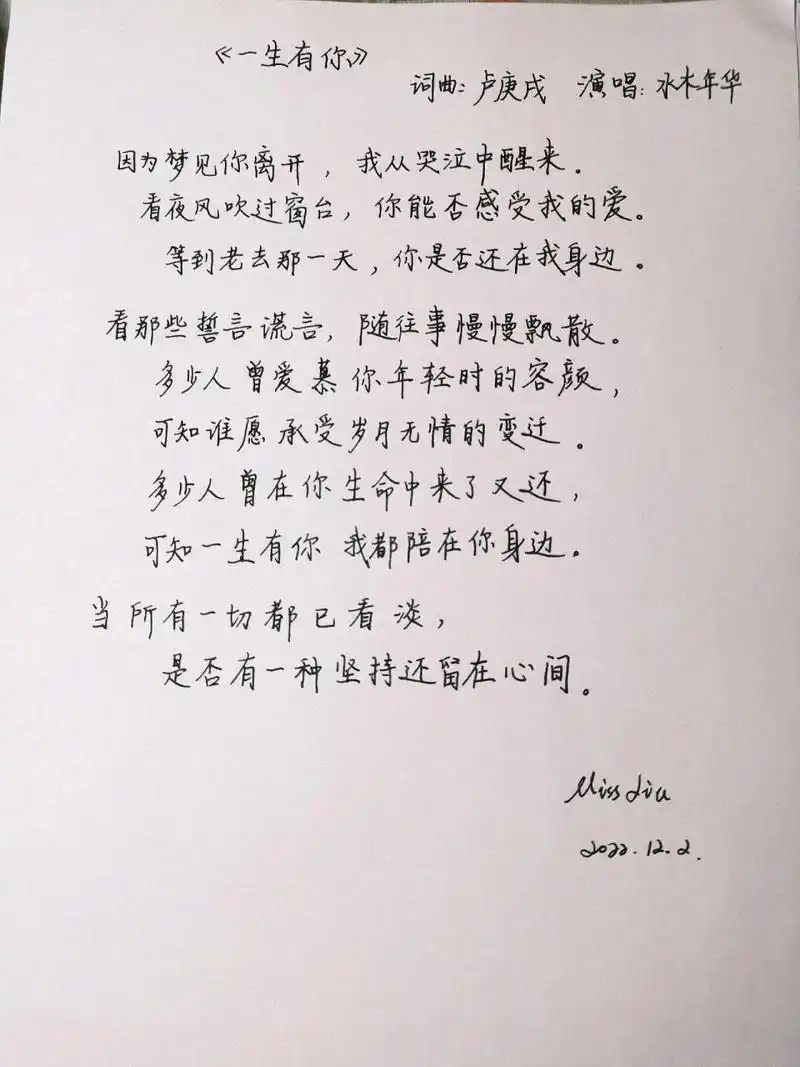 《一生有你》
词曲:卢庚戌 演唱:水木年华
因为梦见你离开,我从哭泣中醒来.
看夜风吹过窗台,你能否感受我的爱。
等到老去那一天,你是否还在我身边.
看那些誓言谎言,随往事慢慢飘散。
多少人曾爱慕你年轻时的容颜,
可知谁愿承受岁月无情的变迁。
多少人曾在你生命中来了又还,
可知一生有你 我都陪在你身边。
当所有一切都已看淡,
是否有一种坚持还留在心间。
Miss Liu
2022.12.2.